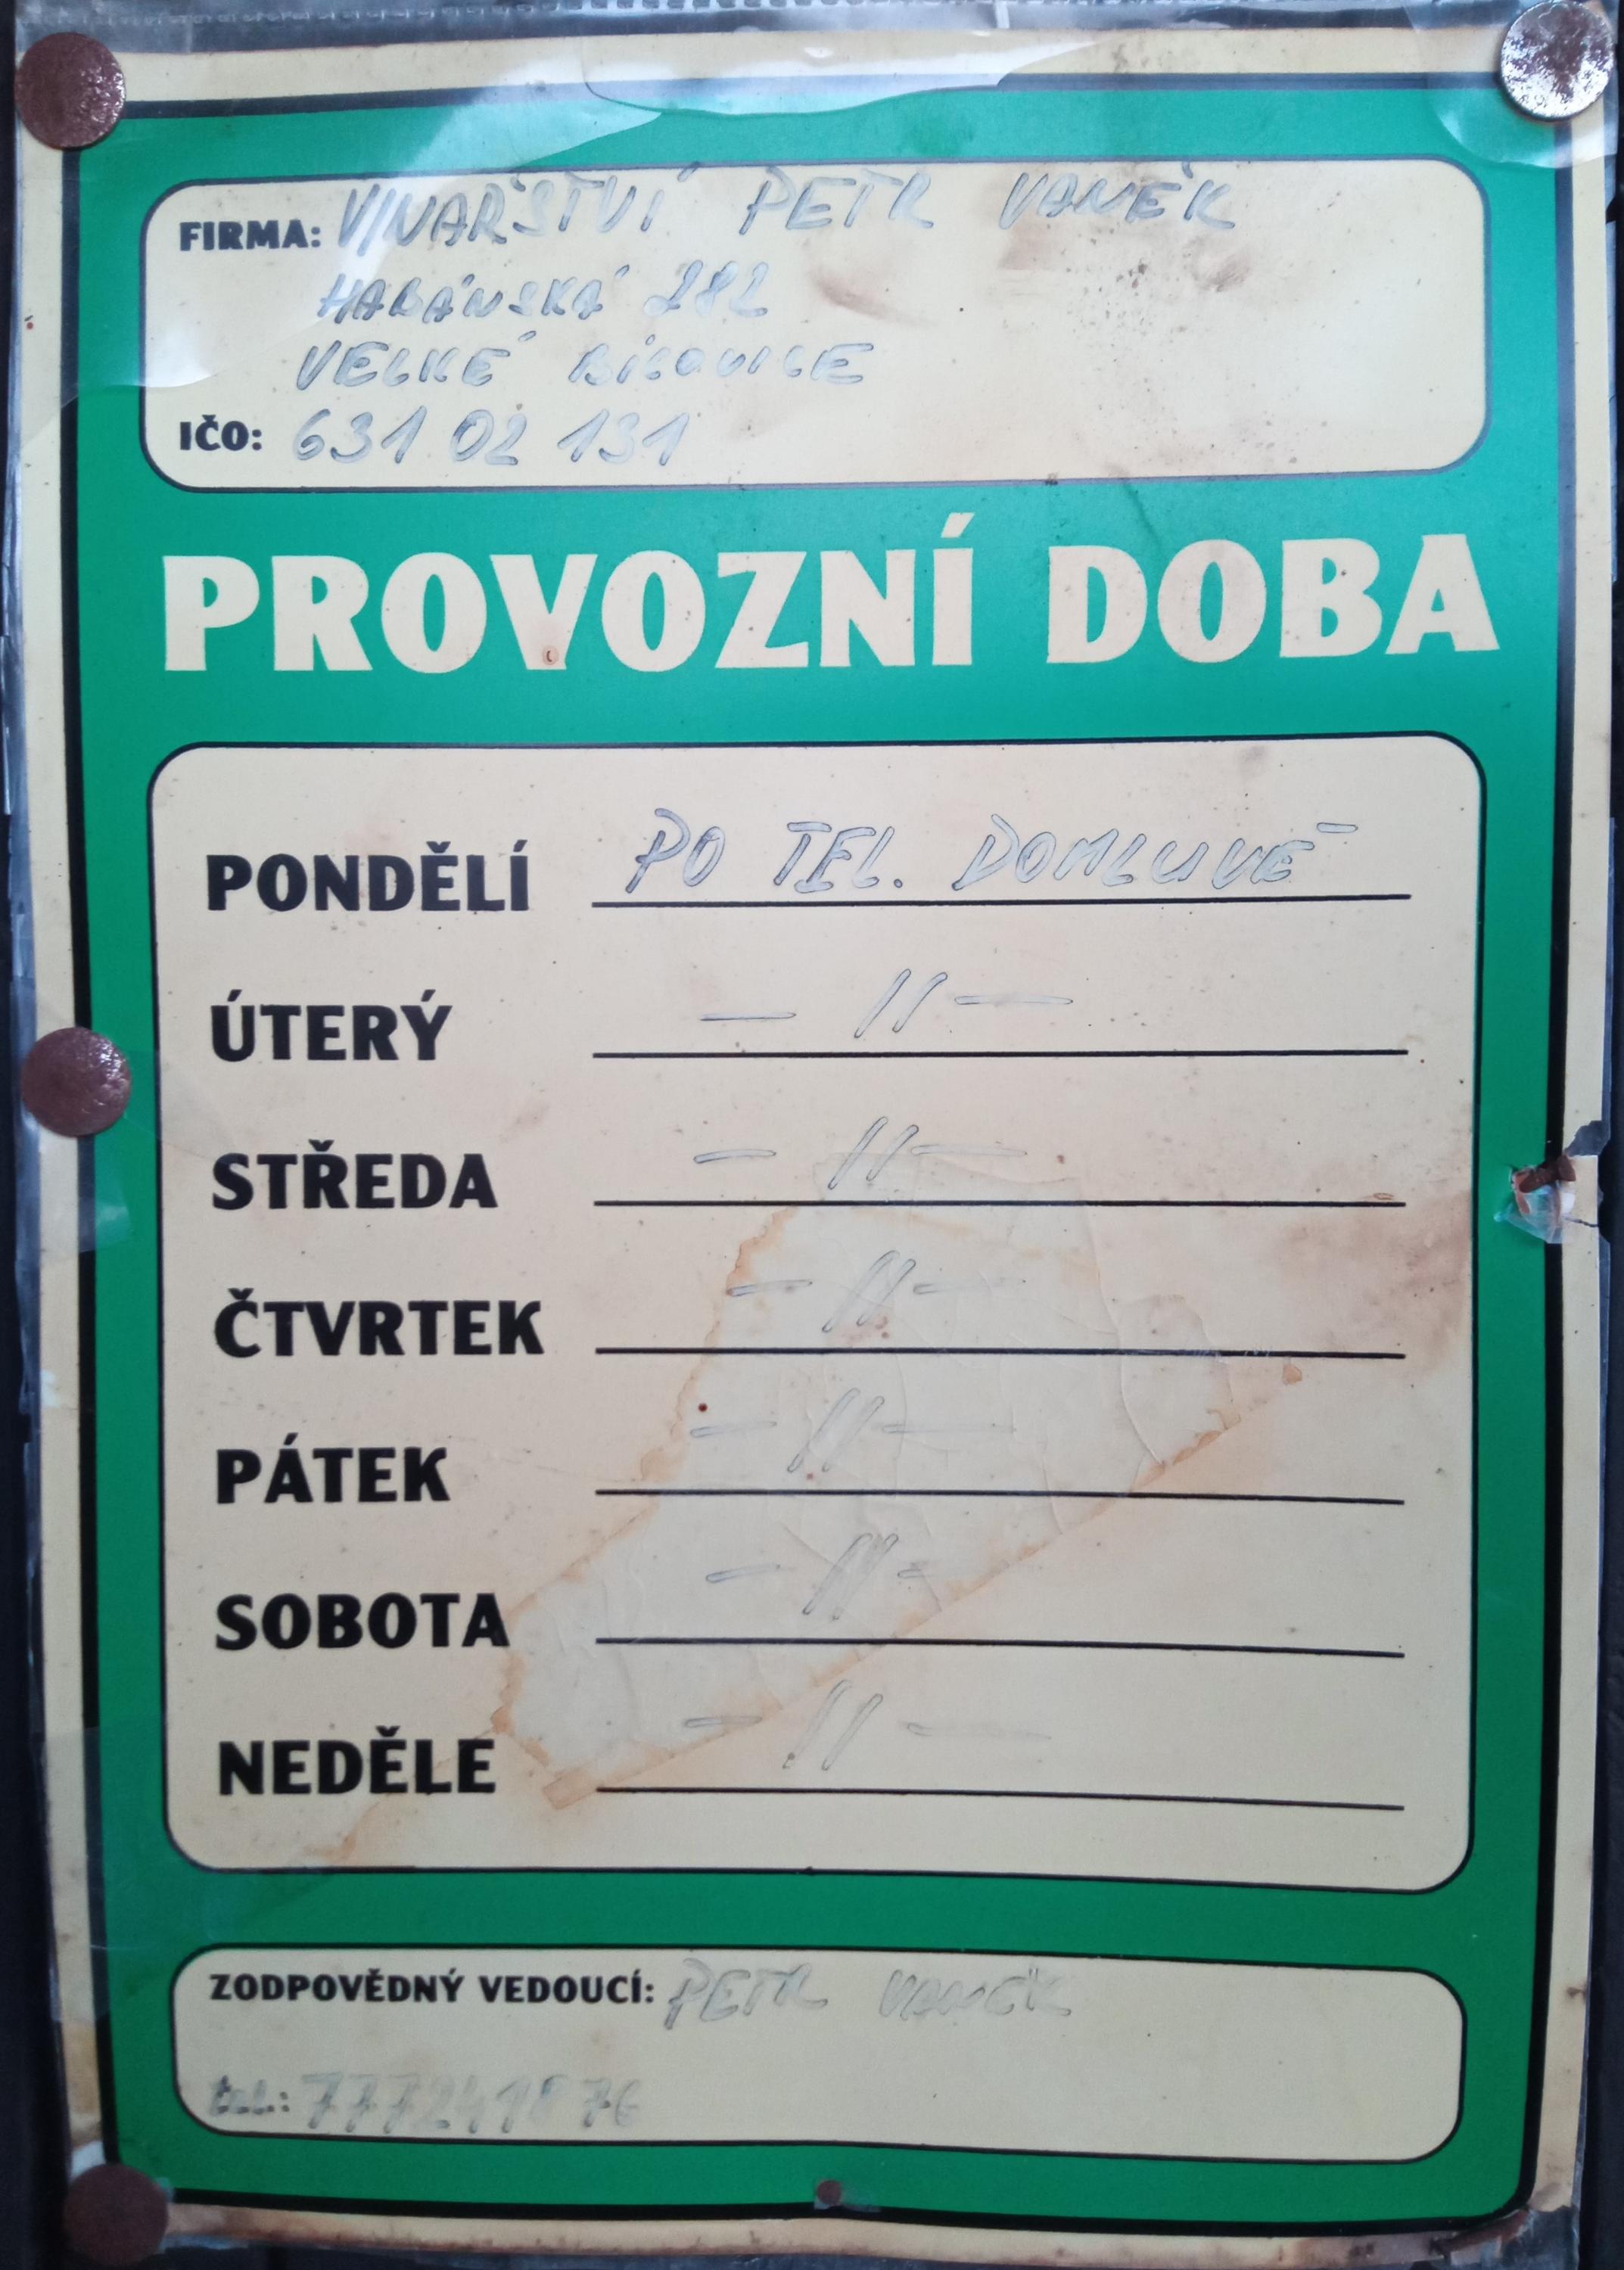 FIRMA: VINAŘSTVÍ PETR VANĚK
HABÁNSKÁ 282
VELKÉ BÍLOVICE
IČO: 631 02 131
PROVOZNÍ DOBA
PONDĚLÍ PO TEL. DOMLUVĚ
ÚTERÝ — 11 —
STŘEDA — 11 —
ČTVRTEK — 11 —
PÁTEK — 11 —
SOBOTA — 11 —
NEDĚLE — 11 —
ZODPOVĚDNÝ VEDOUCÍ: PETR VANĚK
tel.: